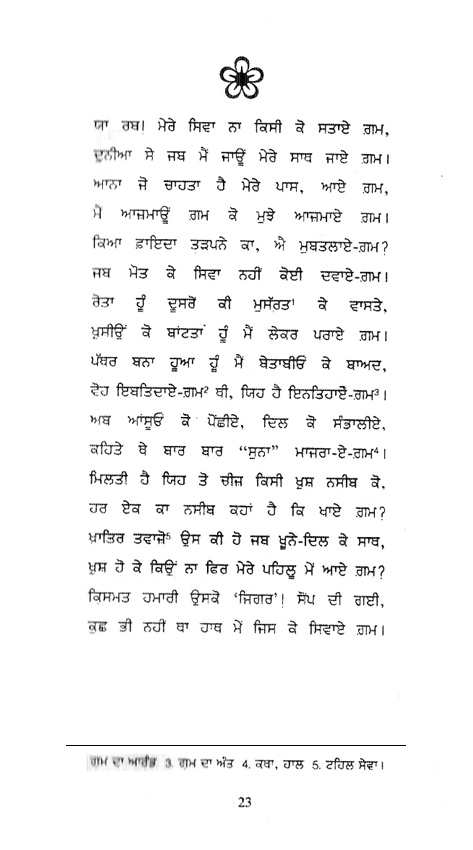 ਯਾ ਰਬ! ਮੇਰੇ ਸਿਵਾ ਨਾ ਕਿਸੀ ਕੋ ਸਤਾਏ ਗ਼ਮ,
ਦੁਨੀਆ ਸੇ ਜਬ ਮੈਂ ਜਾਊਂ ਮੇਰੇ ਸਾਥ ਜਾਏ ਗ਼ਮ।
ਆਨਾ ਜੋ ਚਾਹਤਾ ਹੈ ਮੇਰੇ ਪਾਸ, ਆਏ ਗ਼ਮ,
ਮੈਂ ਆਜ਼ਮਾਊਂ ਗ਼ਮ ਕੋ ਮੁਝੇ ਆਜ਼ਮਾਏ ਗ਼ਮ।
ਕਿਆ ਫ਼ਾਇਦਾ ਤੜਪਨੇ ਕਾ, ਐ ਮੁਬਤਲਾਏ-ਗ਼ਮ?
ਜਬ ਮੌਤ ਕੇ ਸਿਵਾ ਨਹੀਂ ਕੋਈ ਦਵਾਏ-ਗ਼ਮ।
ਰੋਤਾ ਹੂੰ ਦੂਸਰੋਂ ਕੀ ਮੁਸੱਰਤ¹ ਕੇ ਵਾਸਤੇ,
ਖ਼ੁਸੀਉਂ ਕੋ ਬਾਂਟਤਾਂ ਹੂੰ ਮੈਂ ਲੇਕਰ ਪਰਾਏ ਗ਼ਮ।
ਪੱਥਰ ਬਨਾ ਹੂਆ ਹੂੰ ਮੈਂ ਬੇਤਾਬੀਓਂ ਕੇ ਬਾਅਦ,
ਵੋਹ ਇਬਤਿਦਾਏ-ਗ਼ਮ² ਥੀ, ਯਿਹ ਹੈ ਇਨਤਿਹਾਏ-ਗ਼ਮ³।
ਅਬ ਆਂਸੂਓਂ ਕੋ ਪੋਂਛੀਏ, ਦਿਲ ਕੋ ਸੰਭਾਲੀਏ,
ਕਹਿਤੇ ਥੇ ਬਾਰ ਬਾਰ “ਸੁਨਾ” ਮਾਜਰਾ-ਏ-ਗ਼ਮ⁴।
ਮਿਲਤੀ ਹੈ ਯਿਹ ਤੋ ਚੀਜ਼ ਕਿਸੀ ਖ਼ੁਸ਼ ਨਸੀਬ ਕੋ,
ਹਰ ਏਕ ਕਾ ਨਸੀਬ ਕਹਾਂ ਹੈ ਕਿ ਖਾਏ ਗ਼ਮ?
ਖ਼ਾਤਿਰ ਤਵਾਜ਼ੋ⁵ ਉਸ ਕੀ ਹੋ ਜਬ ਖ਼ੂਨੇ-ਦਿਲ ਕੇ ਸਾਥ,
ਖ਼ੁਸ਼ ਹੋ ਕੇ ਕਿਉਂ ਨਾ ਫਿਰ ਮੇਰੇ ਪਹਿਲੂ ਮੇਂ ਆਏ ਗ਼ਮ?
ਕਿਸਮਤ ਹਮਾਰੀ ਉਸਕੋ ‘ਜਿਗਰ’! ਸੌਂਪ ਦੀ ਗਈ,
ਕੁਛ ਭੀ ਨਹੀਂ ਥਾ ਹਾਥ ਮੇਂ ਜਿਸ ਕੇ ਸਿਵਾਏ ਗ਼ਮ।
ਗ਼ਮ ਦਾ ਆਰੰਭ 3. ਗ਼ਮ ਦਾ ਅੰਤ 4. ਕਥਾ, ਹਾਲ 5. ਟਹਿਲ ਸੇਵਾ।
23